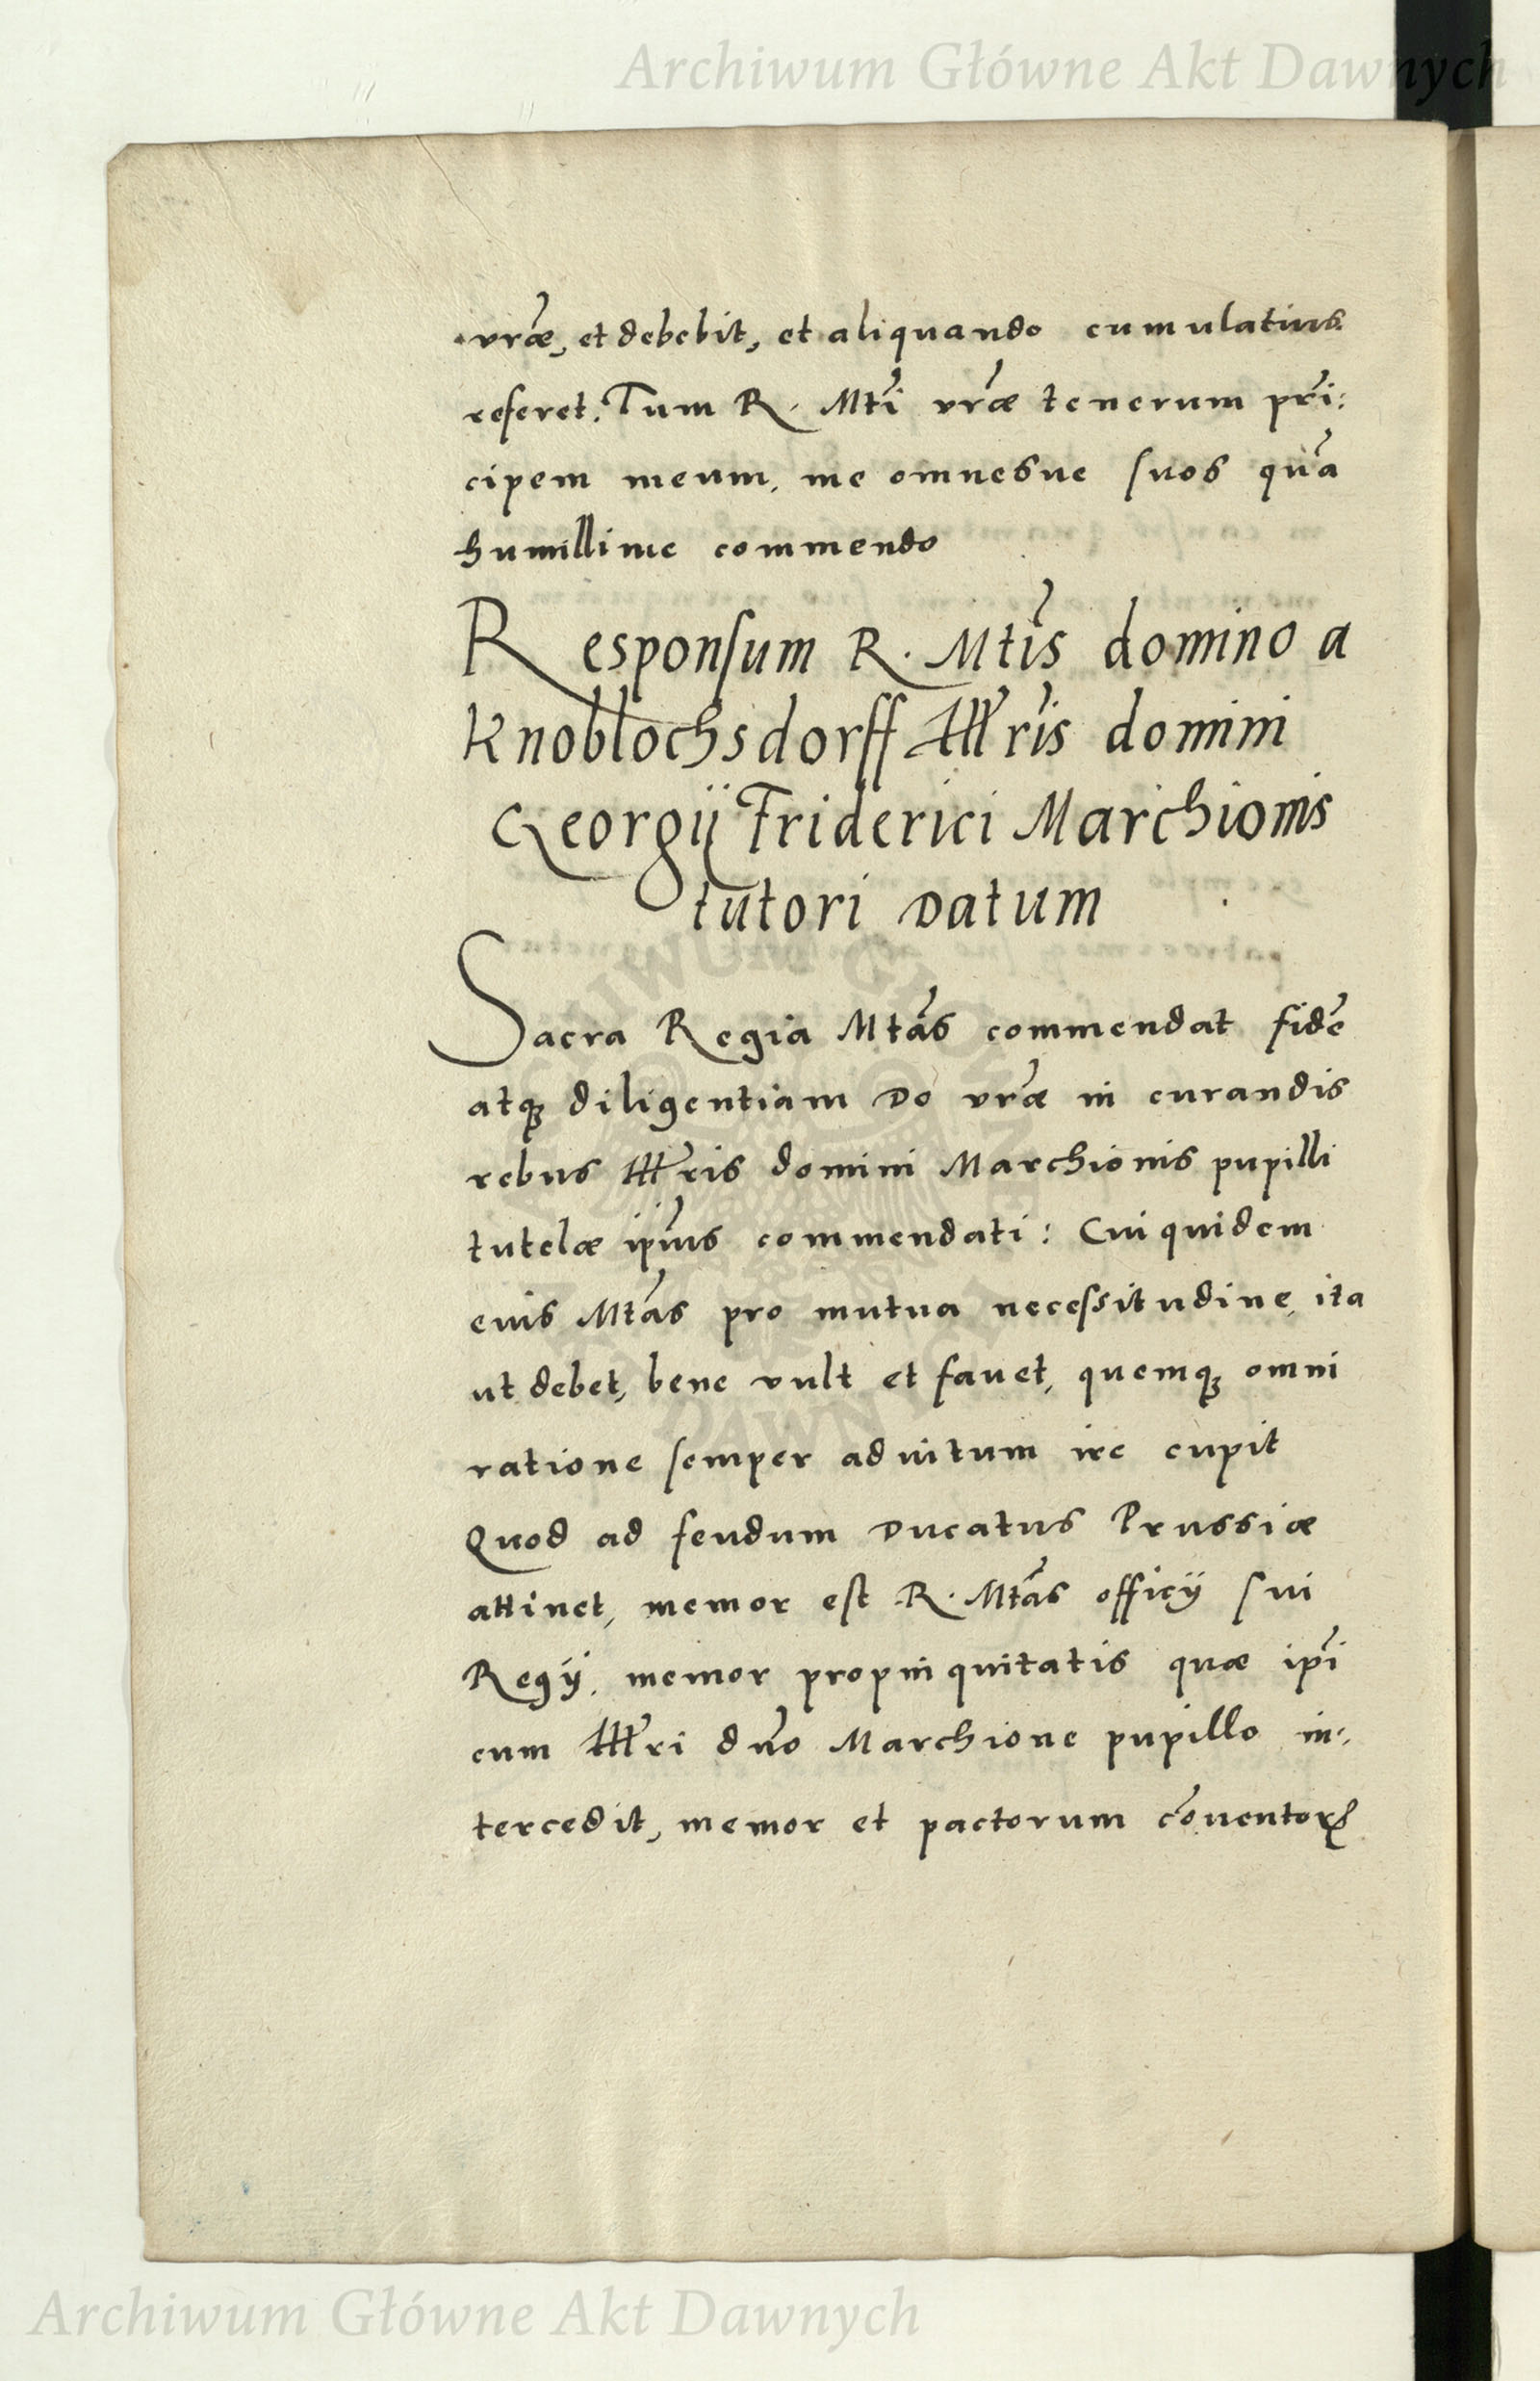 Archiwum Główne Akt Dawnych
vrae, et debebit, et aliquando cumulatius
referet. Tum R. Mti vrae tenerum pri:
cipem meum, me omnesue suos qua
humillime commendo
Responsum R. Mtis domino a
Knoblochsdorff Illris domini
Georgij Friderici Marchionis
tutori datum
Sacra Regia Mtas commendat fidē
atq; diligentiam Do vrae in curandis
rebus Illris domini Marchionis pupilli
tutelae ipius commendati: Cui quidem
eius Mtas pro mutua necessitudine, ita
ut debet, bene vult et fauet, quemq; omni
ratione semper aduitum ire cupit
Quod ad feudum Ducatus Prussiae
attinet, memor est R. Mtas officij sui
Regij, memor propinquitatis quae ipi
cum Illri dno Marchione pupillo in-
tercedit, memor et pactorum cōuentorꝝ
Archiwum Główne Akt Dawnych